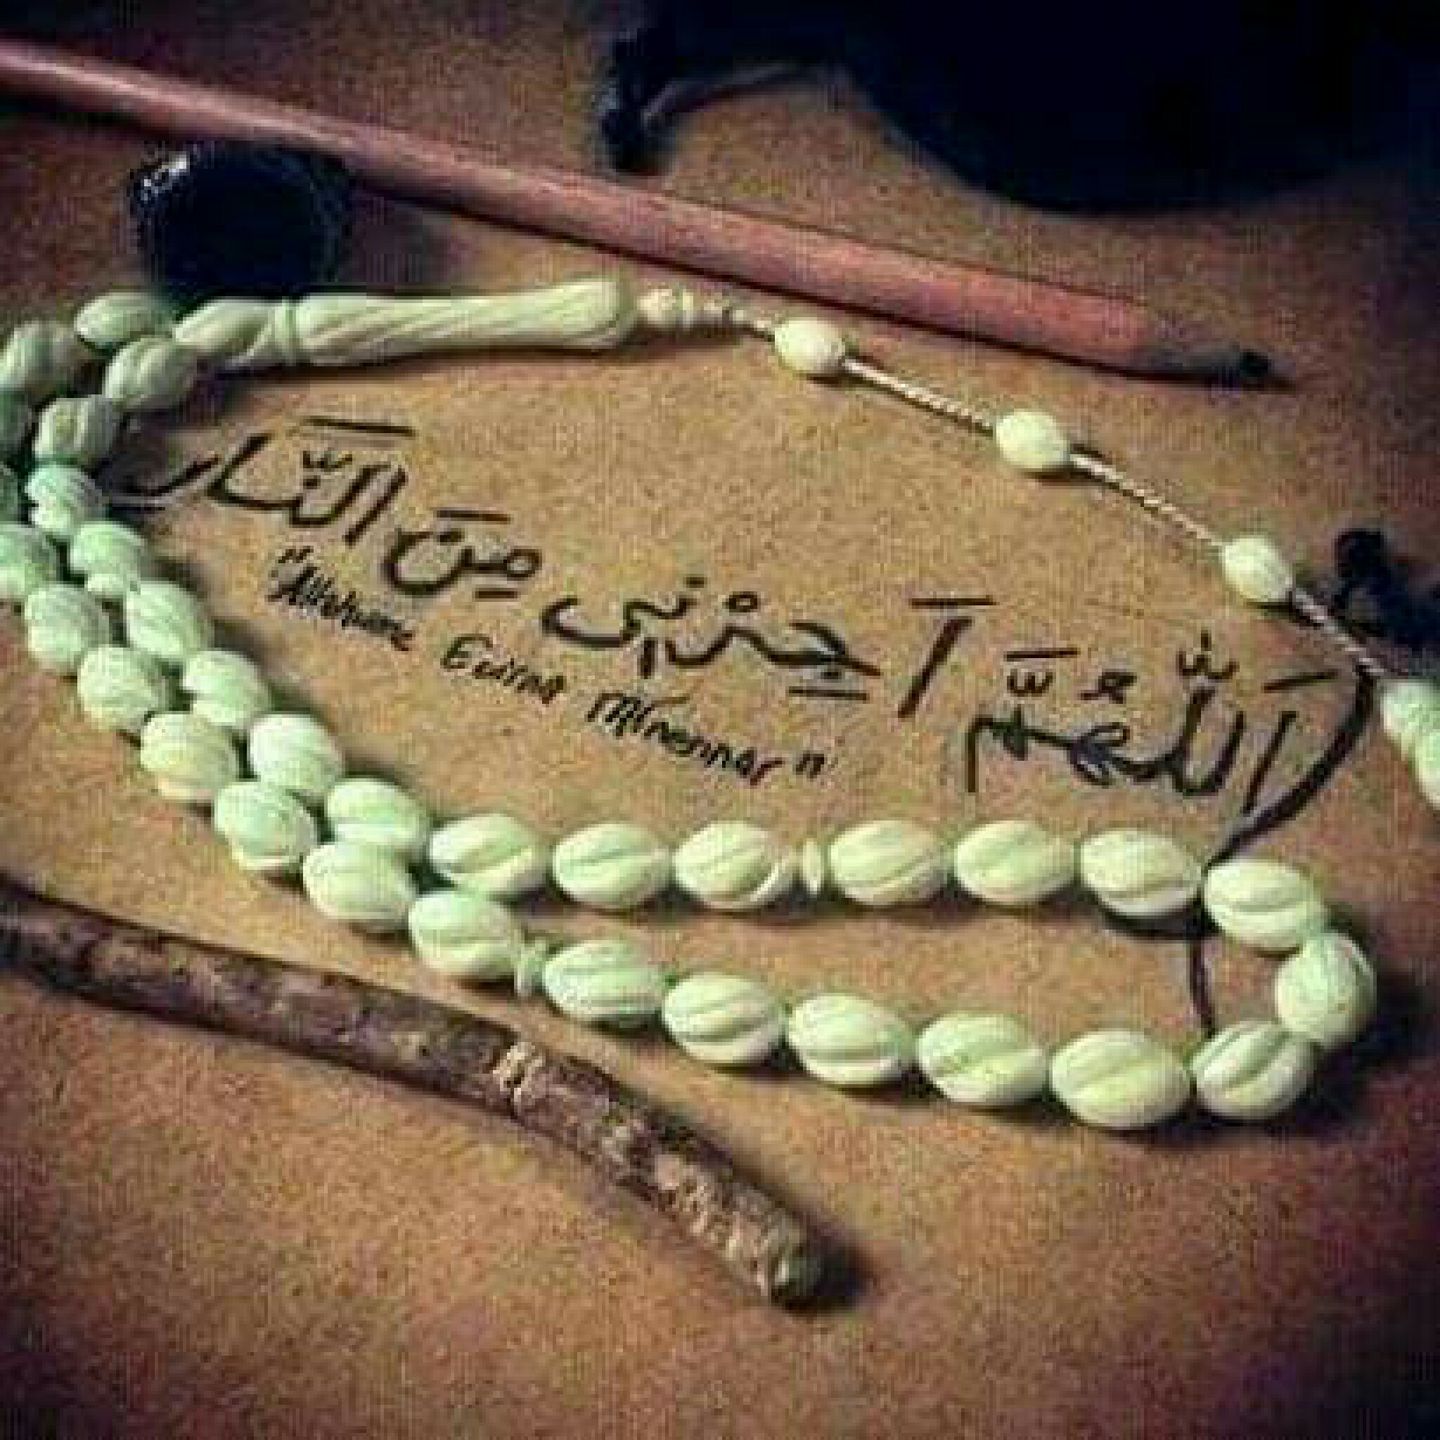 اَللّٰهُمَّ اَجِرْنِى مِنَ اَلنَّار
"Allahume Ecirna Minennar"